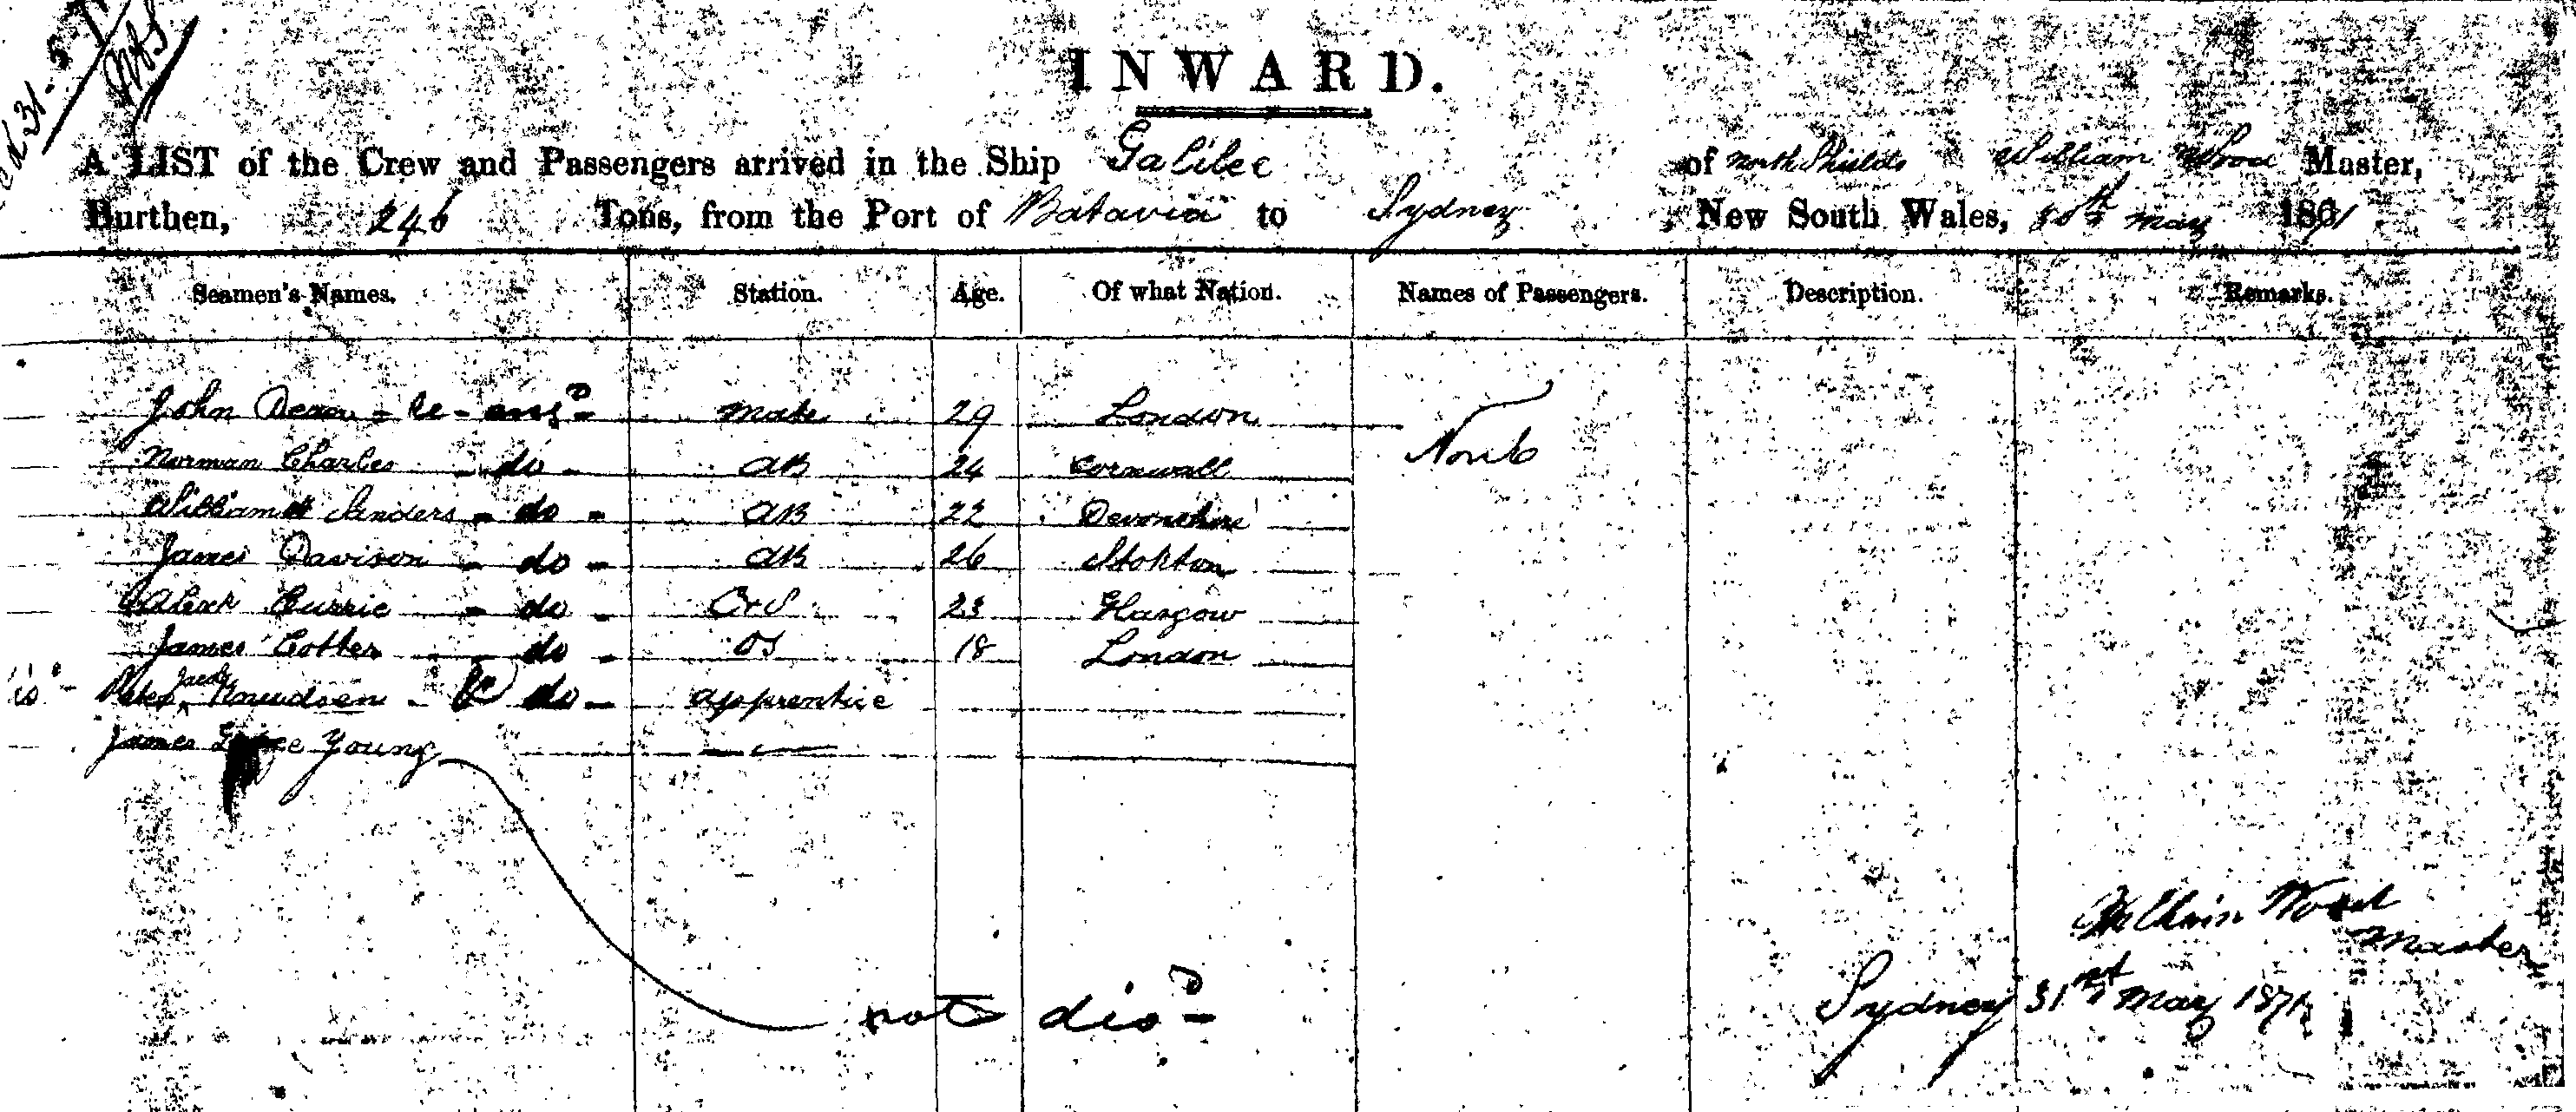 31-5-
INWARD.
A LIST of the Crew and Passengers arrived in the Ship Galilee of North Shields William Wood Master,
Burthen, 246 Tons, from the Port of Batavia to Sydney New South Wales, 30th May 1871
Seamen's Names. Station. Age. Of what Nation. Names of Passengers. Description. Remarks.
John - Re-engd - Mate 29 London
Norman Charles - do - AB 24 Cornwall None
William Sanders - do - AB 22 Devonshire
James Davison - do - AB 26 Stokton
Alexr Currie - do - O+S 23 Glasgow
James Cotter - do - OS 18 London
Peter Knudsen - do - apprentice
James Young
William Wood
Master
not disd -
Sydney 31st May 1871